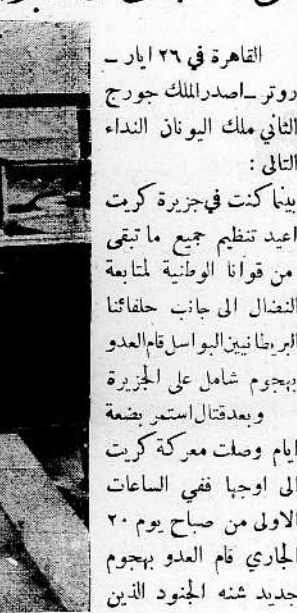 القاهرة في ٢٦ ايار ـ
روتر ـ اصدر الملك جورج
الثاني ملك اليونان النداء
التالي :
بينما كنت في جزيرة كريت
اعيد تنظيم جميع ما تبقى
من قوانا الوطنية لمتابعة
النضال الى جانب حلفائنا
البريطانيين البواسل قام العدو
بهجوم شامل على الجزيرة
وبعد قتال استمر بضعة
ايام وصلت معركة كريت
الى اوجها ففي الساعات
الاولى من صباح يوم ٢٠
الجاري قام العدو بهجوم
جديد شنه الجنود الذين